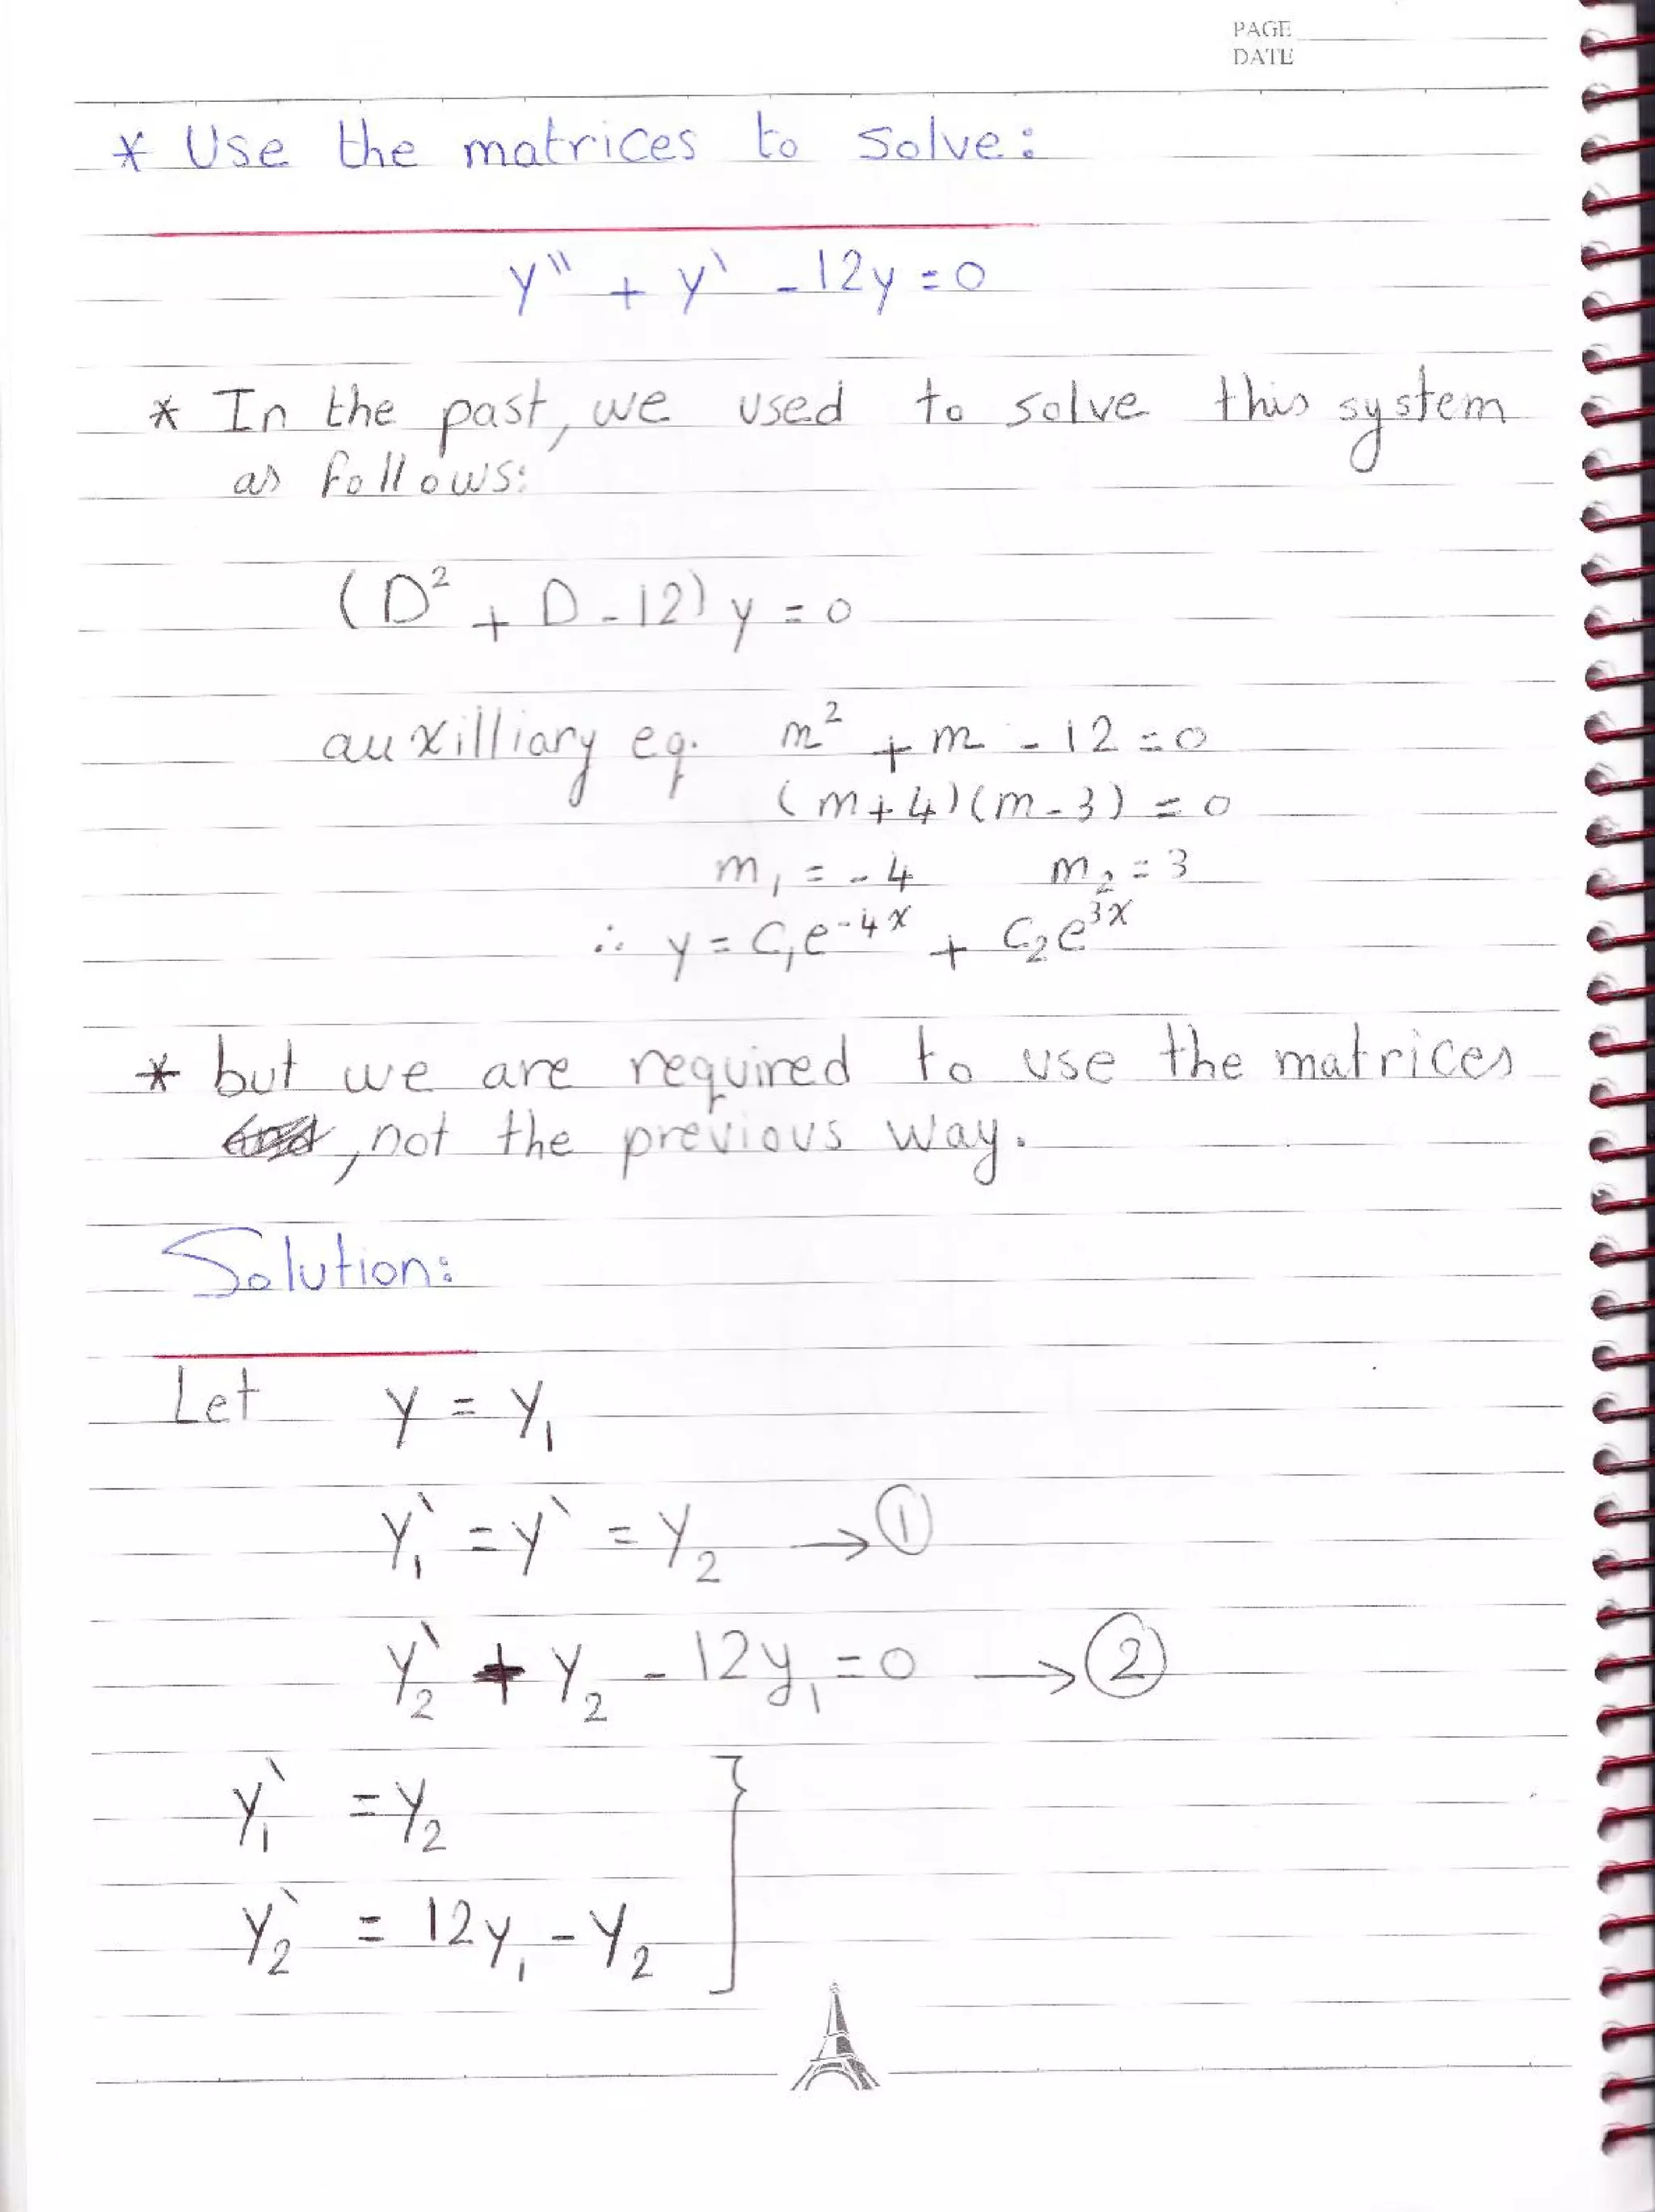 PAGE
DATE
* Use the matrices to solve:
y'' + y' - 12y = 0
* In the past, we used to solve this system
as follows:
(D² + D - 12) y = 0
auxilliary eq. m² + m - 12 = 0
(m + 4)(m - 3) = 0
m₁ = - 4 m₂ = 3
∴ y = C₁e⁻⁴ˣ + C₂e³ˣ
* but we are required to use the matrices
, not the previous way.
Solution:
Let y = y₁
y₁' = y' = y₂ → ①
y₂' + y₂ - 12y₁ = 0 → ②
y₁' = y₂
y₂' = 12y₁ - y₂